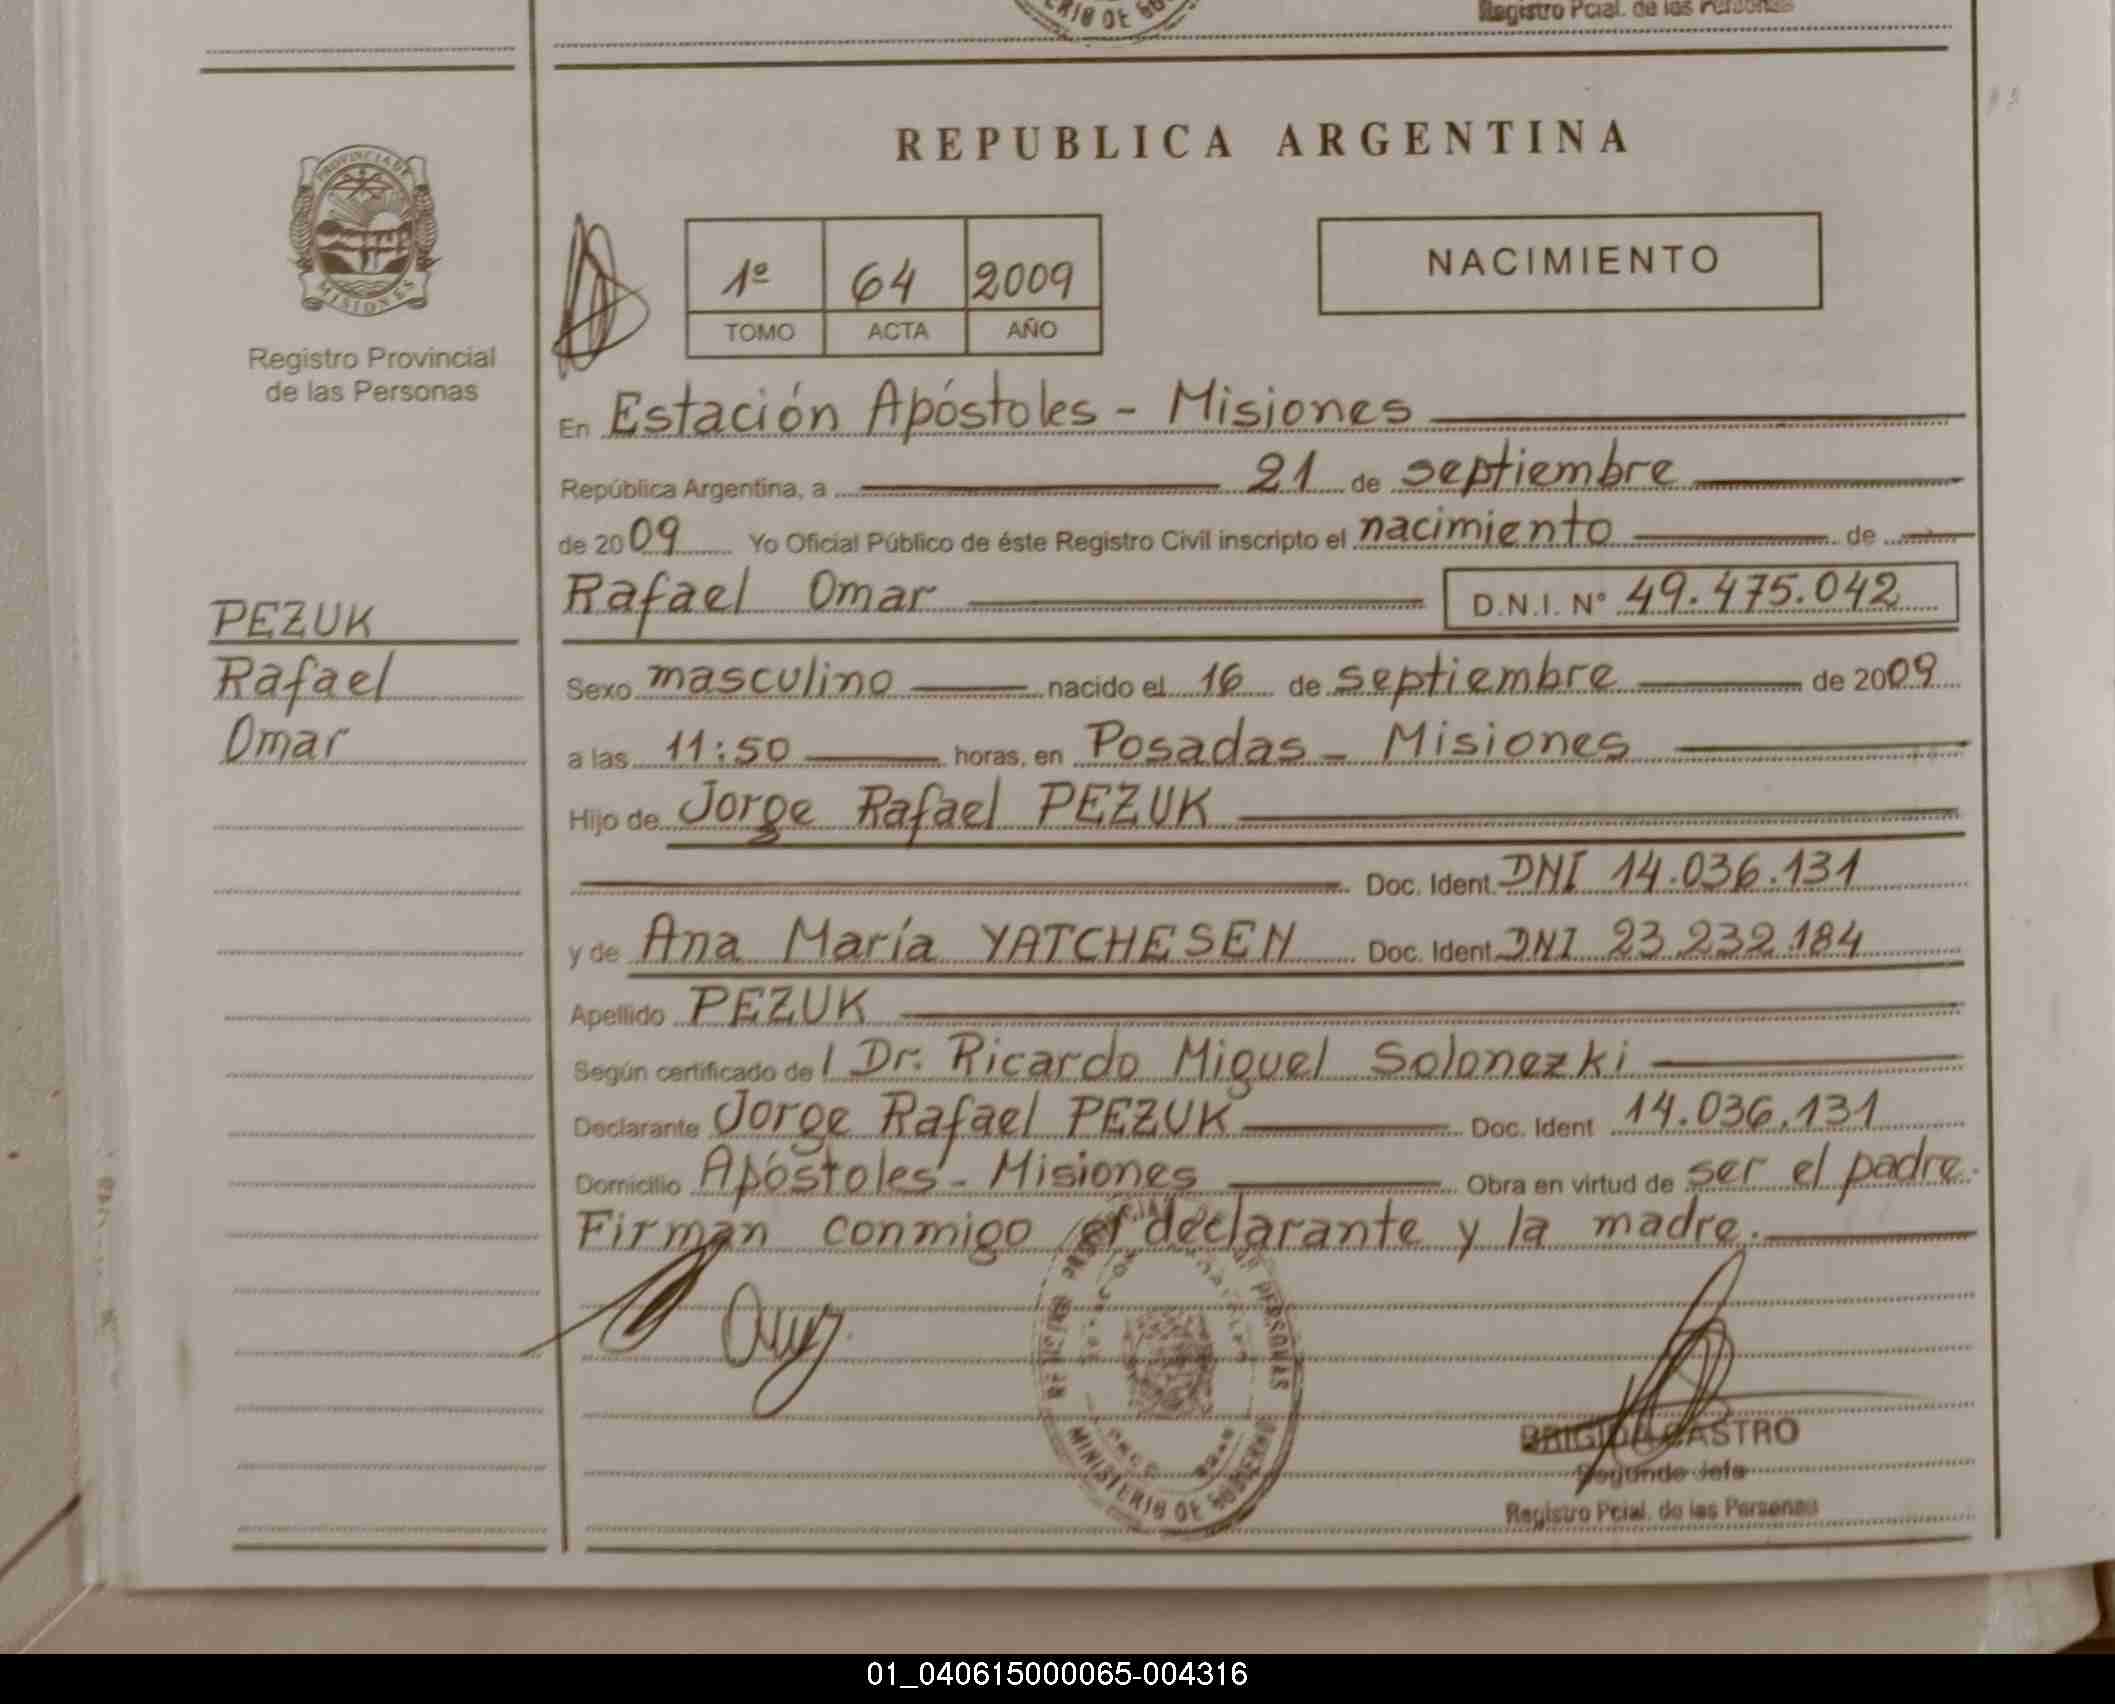 MINISTERIO DE GOBIERNO
Registro Pcial. de las Personas
REPUBLICA ARGENTINA
PROVINCIA DE
MISIONES
Registro Provincial
de las Personas
1º 64 2009
TOMO ACTA AÑO
NACIMIENTO
En Estación Apóstoles - Misiones
República Argentina, a 21 de septiembre
de 2009 Yo Oficial Público de éste Registro Civil inscripto el nacimiento de
Rafael Omar D.N.I. Nº 49.475.042
PEZUK
Rafael
Omar
Sexo masculino nacido el 16 de septiembre de 2009
a las 11:50 horas, en Posadas - Misiones
Hijo de Jorge Rafael PEZUK
Doc. Ident. DNI 14.036.131
y de Ana María YATCHESEN Doc. Ident. DNI 23.232.184
Apellido PEZUK
Según certificado del Dr. Ricardo Miguel Solonezki
Declarante Jorge Rafael PEZUK Doc. Ident 14.036.131
Domicilio Apóstoles - Misiones Obra en virtud de ser el padre.
Firman conmigo el declarante y la madre.
MINISTERIO DE GOBIERNO
BRIGIDA CASTRO
Segundo Jefe
Registro Pcial. de las Personas
01_040615000065-004316